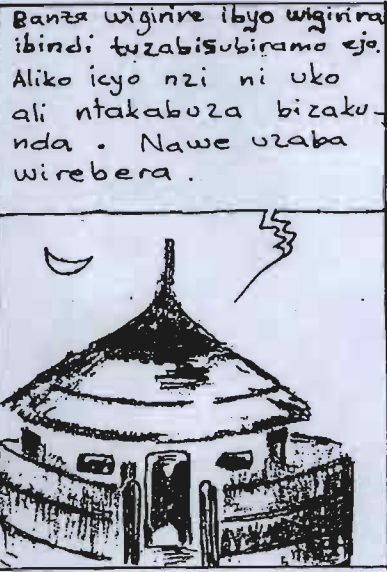 Banza wigirire ibyo wigirira
ibindi tuzabisubiramo ejo.
Aliko icyo nzi ni uko
ali ntakabuza bizaku-
nda. Nawe uzaba
wirebera.